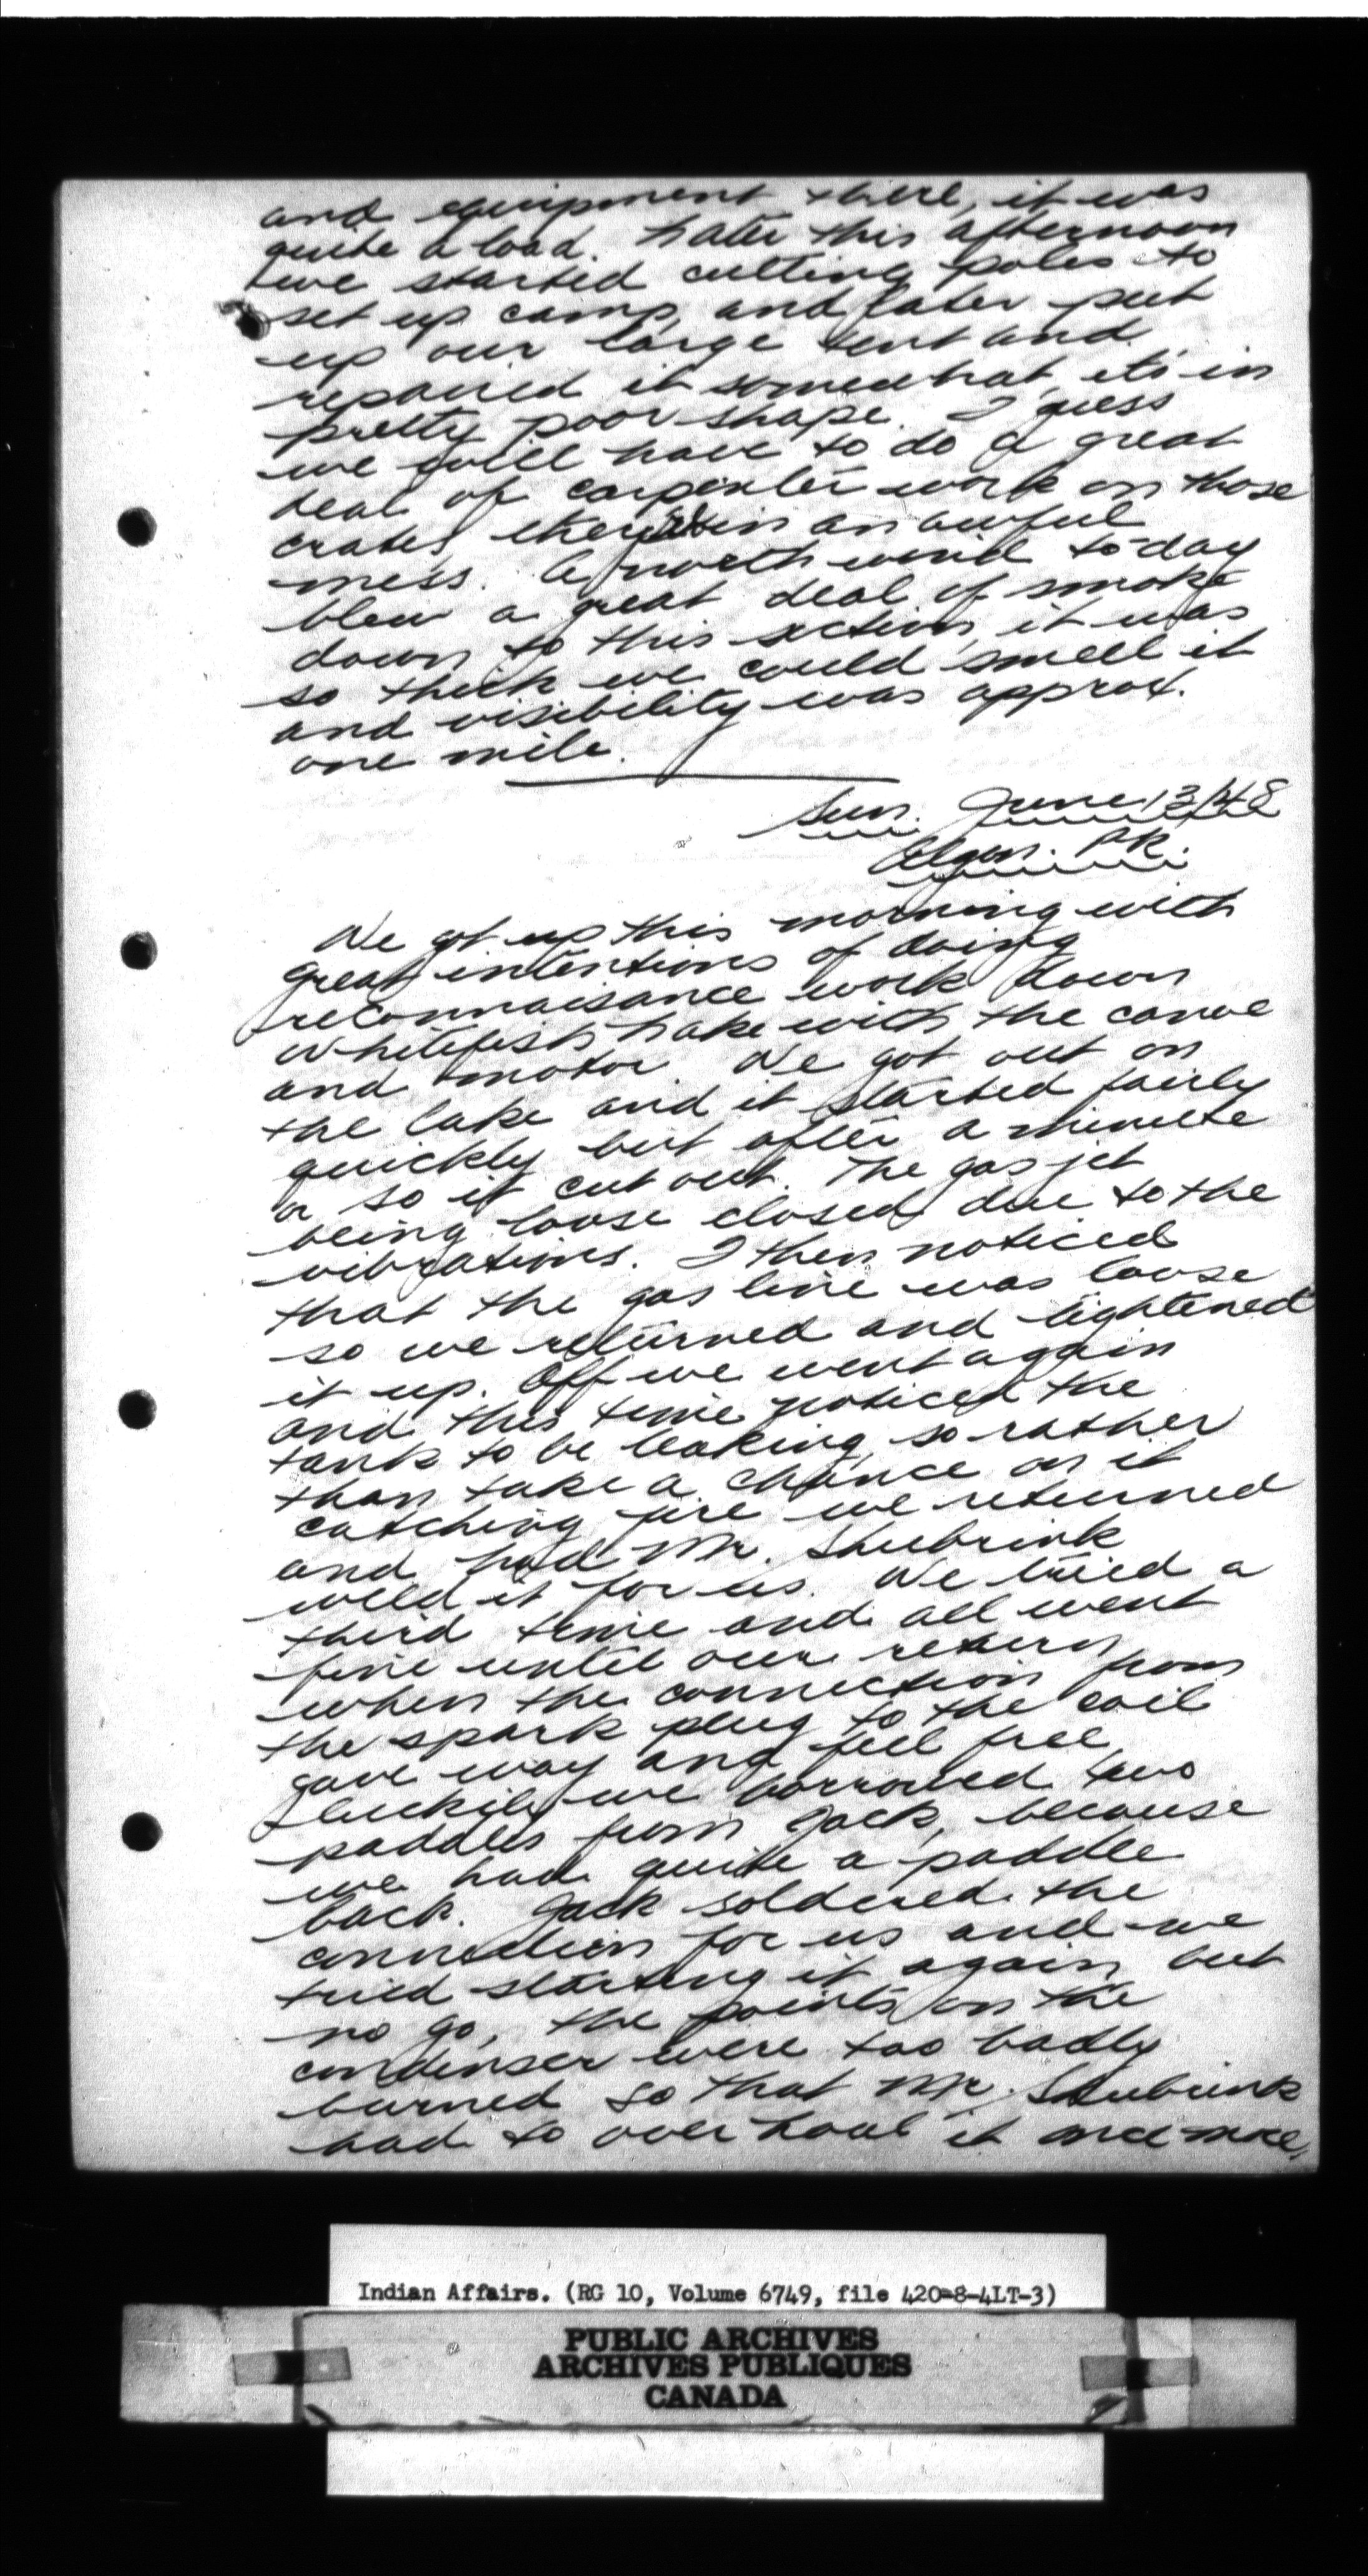 and equipment there, it was
quite a load. Later this afternoon
we started cutting poles to
set up camp, and later put
up our large tent and
repaired it somewhat, it's in
pretty poor shape. I guess
we will have to do a great
deal of carpenter work on those
crates, they in an awful
mess. A north wind to-day
blew a great deal of smoke
down to this section, it was
so thick we could smell it
and visibility was approx.
one mile.
Sun. June 13/48
Algon. PK.
We got up this morning with
great intentions of doing
reconnaisance work down
Whitefish Lake with the canoe
and motor. We got out on
the lake and it started fairly
quickly but after a minute
or so it cut out. The gas jet
being loose closed due to the
vibrations. I then noticed
that the gas line was loose
so we returned and tightened
it up. Off we went again
and this time noticed the
tank to be leaking, so rather
than take a chance on it
catching fire we returned
and had Mr. Shubrink
weld it for us. We tried a
third time and all went
fine until our return
when the connection from
the spark plug to the coil
gave way and fell free,
luckily we borrowed two
paddles from Jack, because
we had quite a paddle
back. Jack soldered the
connection for us and we
tried starting it again but
no go, the points on the
condenser were too badly
burned so that Mr. Shubrink
had to over haul it once more.
Indian Affairs. (RG 10, Volume 6749, file 420-8-4LT-3)
PUBLIC ARCHIVES
ARCHIVES PUBLIQUES
CANADA